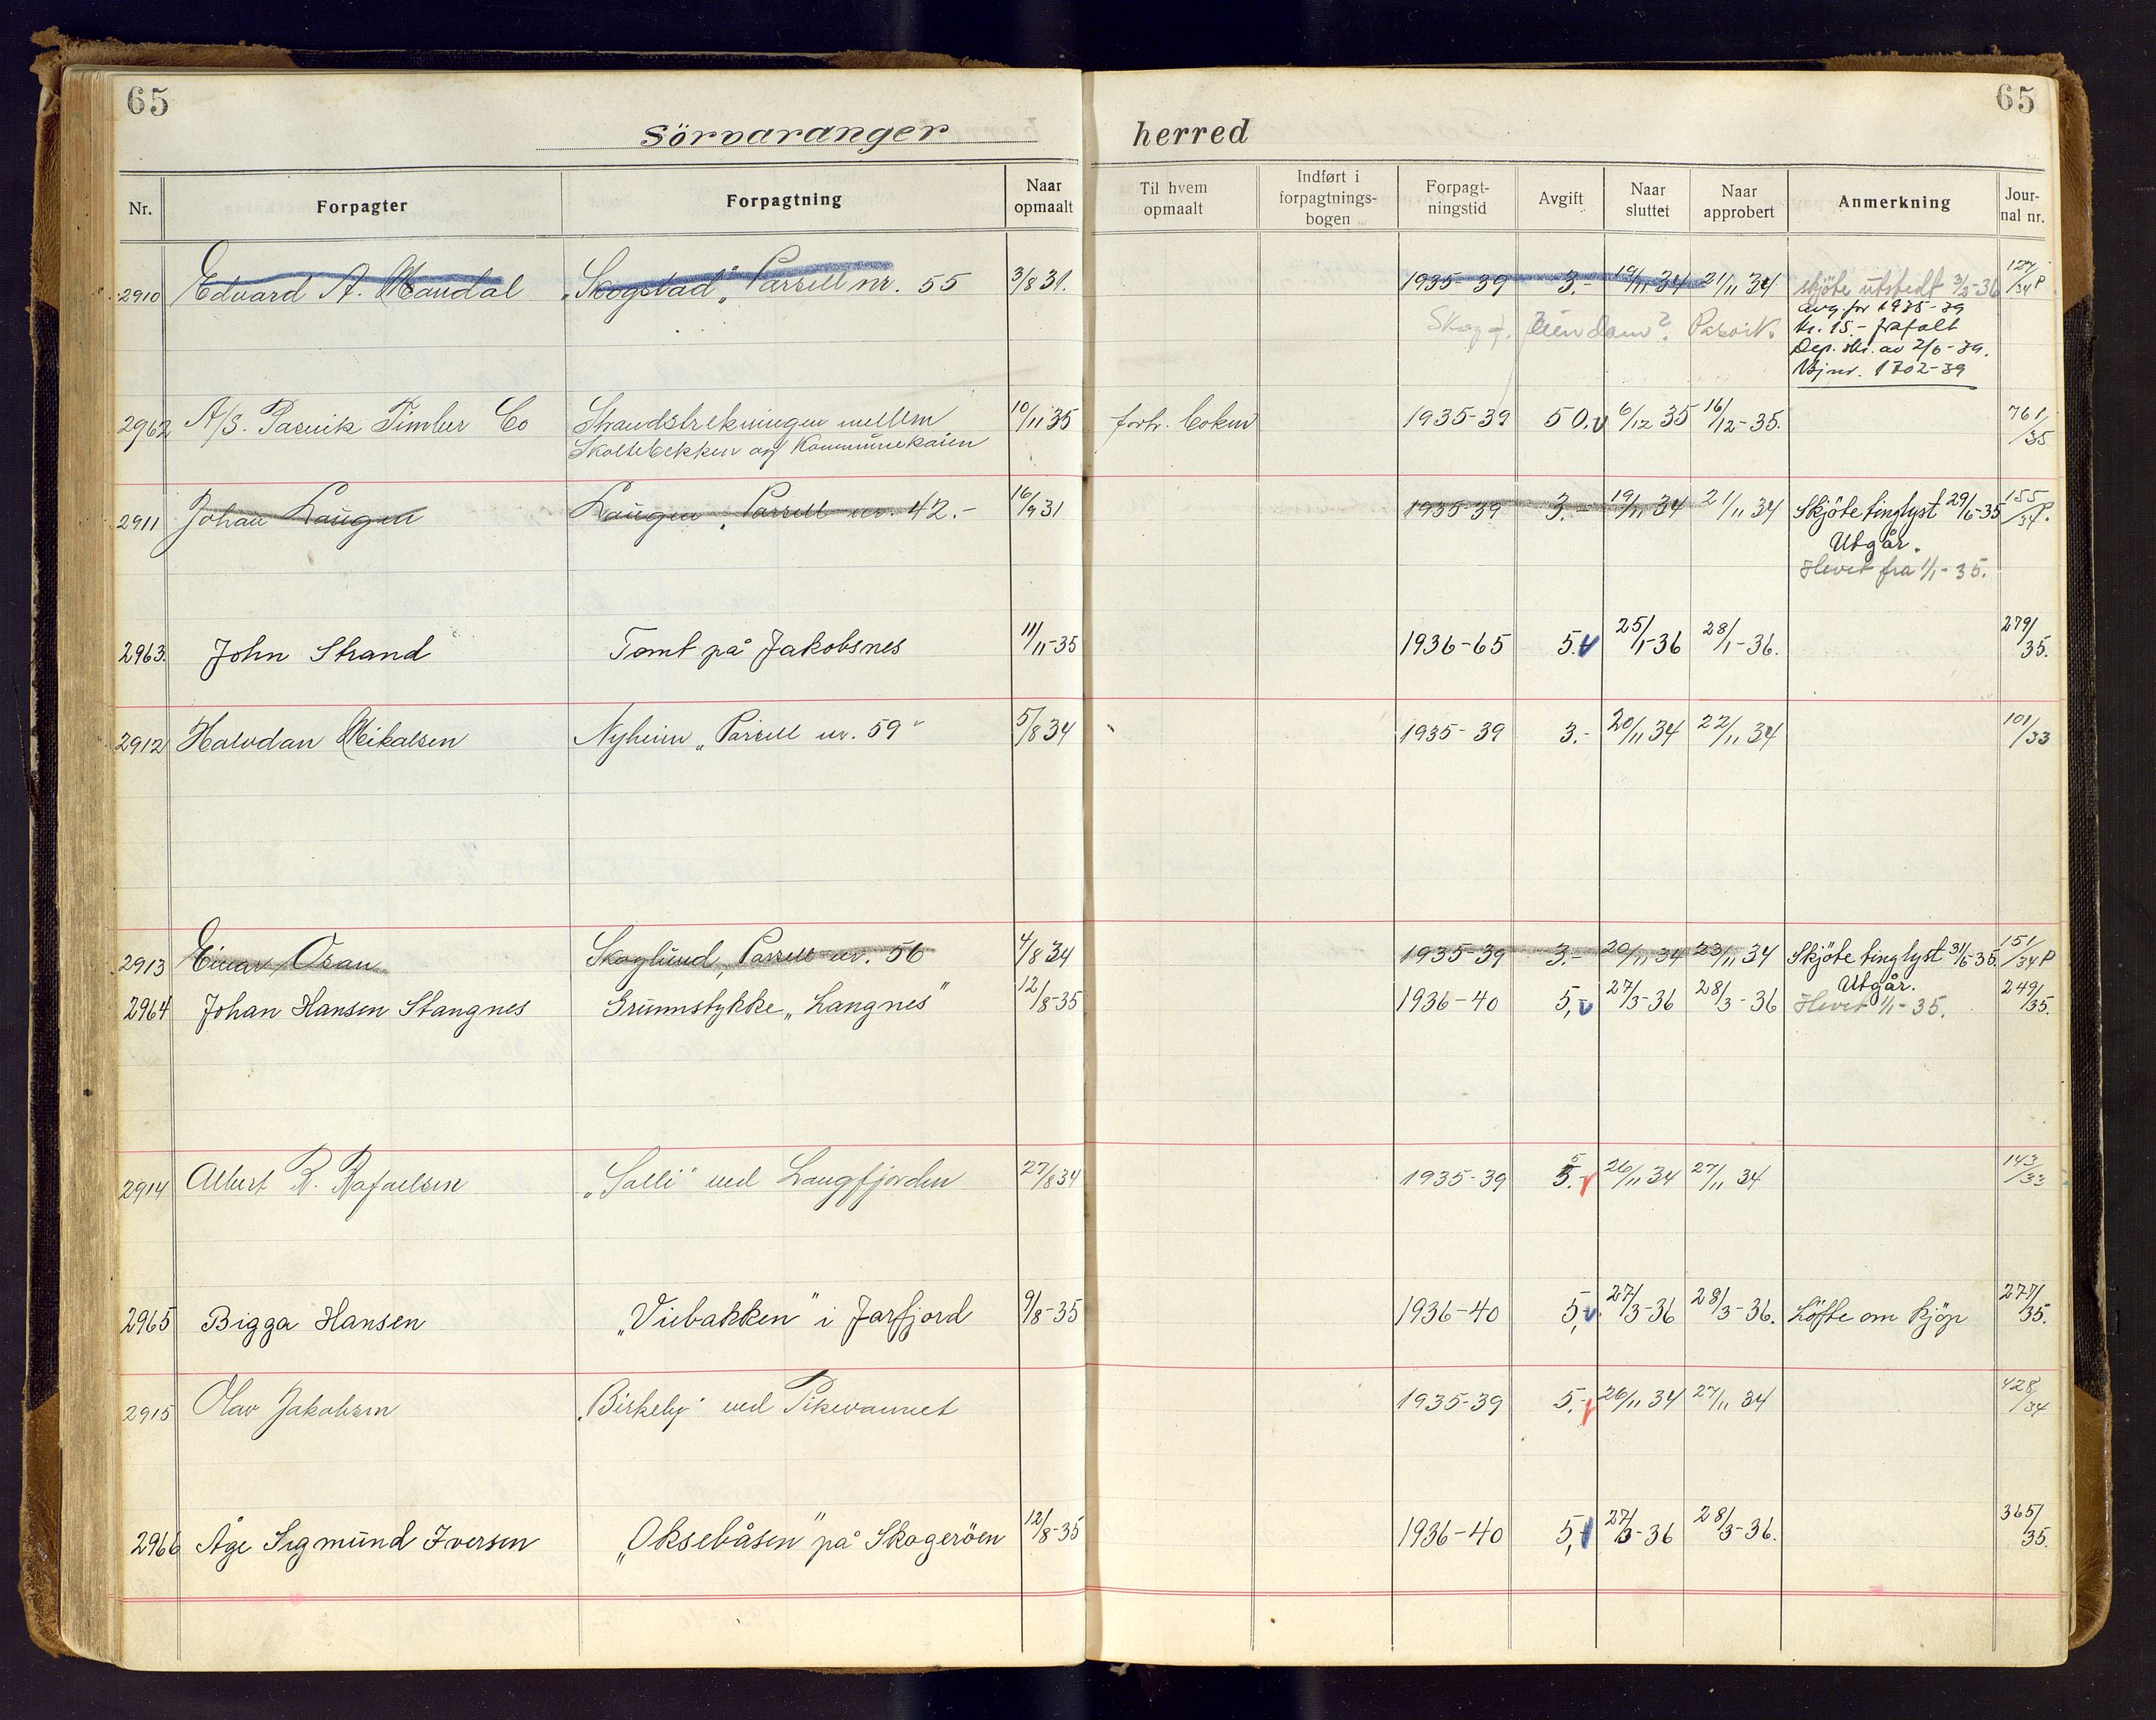 65
65
Sörvaranger herred
Nr. Forpagter Forpagtning Naar opmaalt Til hvem opmaalt Indført i forpagtnings-bogen Forpagt-ningstid Avgift Naar sluttet Naar approbert Anmerkning Jour-nal nr.
2910 Edvard A. Mandal „Skogstad", Parsell nr. 55 3/8 31. 1935-39 3.- 19/11 34 21/11 34 skjöte utstedt 3/2-36 127/34 P
avg. for 1935-39
Skog f. Eiendom? Pasvik. kr. 15.- frafalt
Dep. skr. av 2/6-39.
Bjnr. 1702-39
2962 A/S. Pasvik Timber Co Strandstrekningen mellem 10/11 35 forv. 1935-39 50.- 6/12 35 16/12-35. 761/35
Skoltebekken og Kommunekaien
2911 Johan Haugen Haugen, Parsell nr. 42.- 16/9 31 1935-39 3.- 19/11 34 21/11 34 Skjöte tinglyst 29/6-35 155/34 P.
Utgår.
Hevet fra 1/1-35.
2963. John Strand Tomt på Jakobsnes 11/11-35 1936-65 5.- 25/1-36 28/1-36. 279/35.
2912 Halvdan Mikalsen Nyheim „Parsell nr. 59" 5/8 34 1935-39 3.- 20/11 34 22/11 34 101/33
2913 Einar Oran Skoglund, Parsell nr. 56 4/8 34 1935-39 3.- 20/11 34 23/11 34 Skjöte tinglyst 31/5-35. 151/34 P
Utgår.
2964 Johan Hansen Stangnes Grunnstykke „Langnes" 12/8-35 1936-40 5,- 27/3-36 28/3-36 Hevet 1/1-35. 249/35.
2914 Albert R. Rafaelsen „Salli" ved Langfjorden 27/8 34 1935-39 5.- 26/11 34 27/11 34 143/33
2965 Bigga Hansen „Viebakken" i Jarfjord 9/8-35 1936-40 5,- 27/3-36 28/3-36. Löfte om kjöp 277/35.
2915 Olav Jakobsen „Birkely" ved Pikevannet 1935-39 5.- 26/11 34 27/11 34 428/34
2966 Åge Sigmund Iversen „Oksebåsen" på Skogeröen 12/8-35 1936-40 5,- 27/3-36 28/3-36. 365/35.